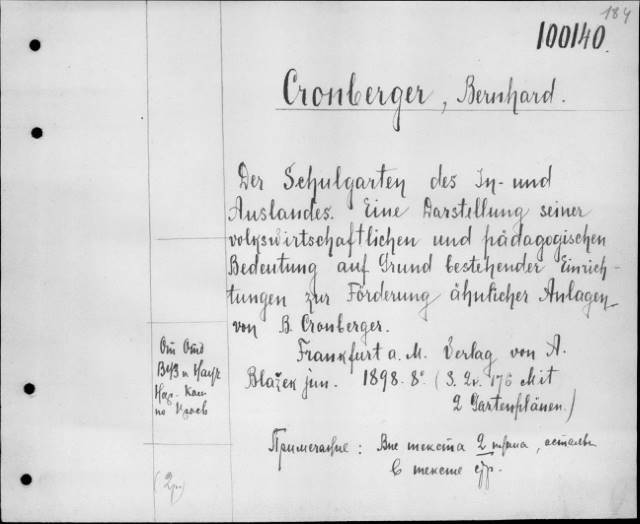 184
100140.
Cronberger, Bernhard.
Der Schulgarten des In- und
Auslandes. Eine Darstellung seiner
volkswirtschaftlichen und pädagogischen
Bedeutung auf Grund bestehender Einrich-
tungen zur Förderung ähnlicher Anlagen
von B. Cronberger.
Frankfurt a. M. Verlag von A.
Blažek jun. 1898. 8° (S. 2u. 176 Mit
2 Gartenplänen.)
От Отд
ВУЗ и Науч
Нар. Ком-
по Просв
Примечание: Вне текста 2 плана, остальн
в тексте
(2р)